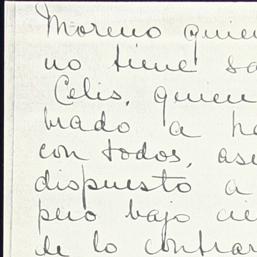 Moreno quien
no tiene sa
Celis, quien
brado a ha
con todos, ase
dispuesto a
pero bajo cie
de lo contrar